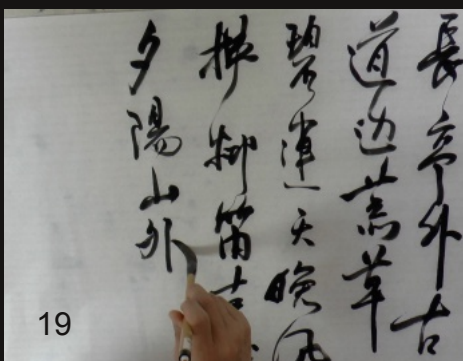 長亭外古
道边芳草
碧連天晚风
拂柳笛
夕陽山外
19